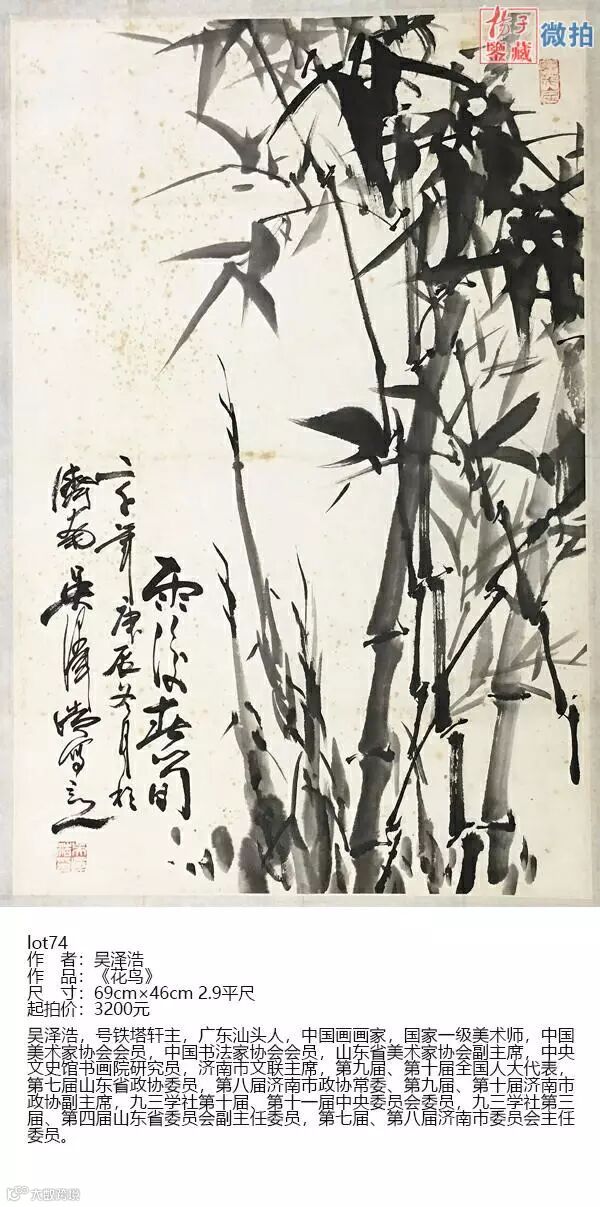 揚子
鑒藏
微拍
雨后春筍
二千年庚辰冬月於
濟南吴澤浩寫意
lot74
作 者：吴泽浩
作 品：《花鸟》
尺 寸：69cm×46cm 2.9平尺
起拍价：3200元
吴泽浩，号铁塔轩主，广东汕头人，中国画画家，国家一级美术师，中国
美术家协会会员，中国书法家协会会员，山东省美术家协会副主席，中央
文史馆书画院研究员，济南市文联主席，第九届、第十届全国人大代表，
第七届山东省政协委员，第八届济南市政协常委、第九届、第十届济南市
政协副主席，九三学社第十届、第十一届中央委员会委员，九三学社第三
届、第四届山东省委员会副主任委员，第七届、第八届济南市委员会主任
委员。
大欧跨境